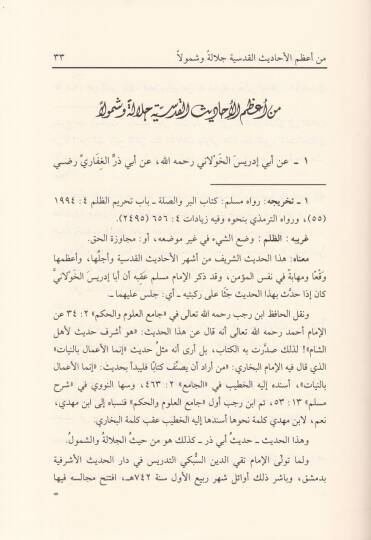 من أعظم الأحاديث القدسية جلالةً وشمولاً ٣٣
من أعظم الأحاديث القدسية جلالة وشمولاً
١ ـ عن أبي إدريسَ الخَوْلاني رحمه الله، عن أبي ذرٍّ الغِفَاريّ رضي
١ ـ تخريجه: رواه مسلم: كتاب البر والصلة ـ باب تحريم الظلم ٤: ١٩٩٤
(٥٥)، ورواه الترمذي بنحوه وفيه زيادات ٤: ٦٥٦ (٢٤٩٥).
غريبه: الظلم: وضع الشيء في غير موضعه، أو: مجاوزة الحق.
معناه: هذا الحديث الشريف من أشهر الأحاديث القدسية وأجلِّها، وأعظمها
وَقْعًا ومهابةً في نفس المؤمن، وقد ذكر الإمام مسلم عقبه أن أبا إدريسَ الخَوْلانيَّ
كان إذا حدَّث بهذا الحديث جَثَا على ركبتيه ـ أي: جلس عليهما ـ.
ونقل الحافظ ابن رجب رحمه الله تعالى في «جامع العلوم والحكم» ٢: ٣٤ عن
الإمام أحمد رحمه الله تعالى أنه قال عن هذا الحديث: «هو أشرف حديث لأهل
الشام»! لذلك صدَّرت به الكتاب، بل أرى أنه مثلُ حديث «إنما الأعمال بالنيات»
الذي قال فيه الإمام البخاري: «من أراد أن يصنِّف كتابًا فليبدأ بحديث: «إنما الأعمال
بالنيات»، أسنده إليه الخطيب في «الجامع» ٢: ٤٦٣، وسها النووي في «شرح
مسلم» ١٣: ٥٣، ثم ابن رجب أول «جامع العلوم والحكم» فنسباه إلى ابن مهدي،
نعم، لابن مهدي كلمة نحوها أسندها إليه الخطيب عقب كلمة البخاري.
وهذا الحديث ـ حديثُ أبي ذر ـ كذلك هو من حيثُ الجلالةُ والشمولُ.
ولما تولَّى الإمام تقي الدين السُّبكي التدريس في دار الحديث الأشرفية
بدمشق، وباشر ذلك أوائل شهر ربيع الأول سنة ٧٤٢هـ، افتتح مجالسه فيها
=